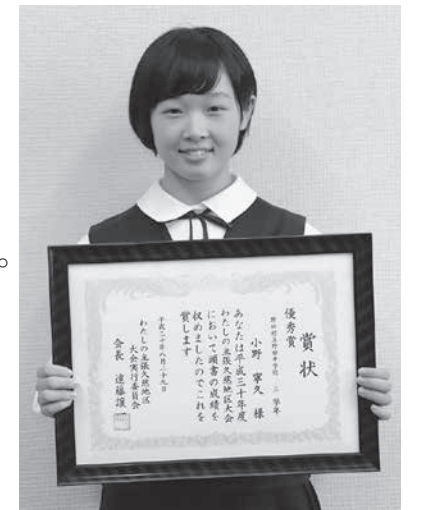 賞状
優秀賞
野田村立野田中学校 学年
小野 寧久 様
あなたは平成三十年度
わたしの主張久慈地区大会
において頭書の成績を
収めましたのでこれを
賞します
平成三十年八月二十九日
わたしの主張久慈地区
大会実行委員会
会長 遠藤譲一
。